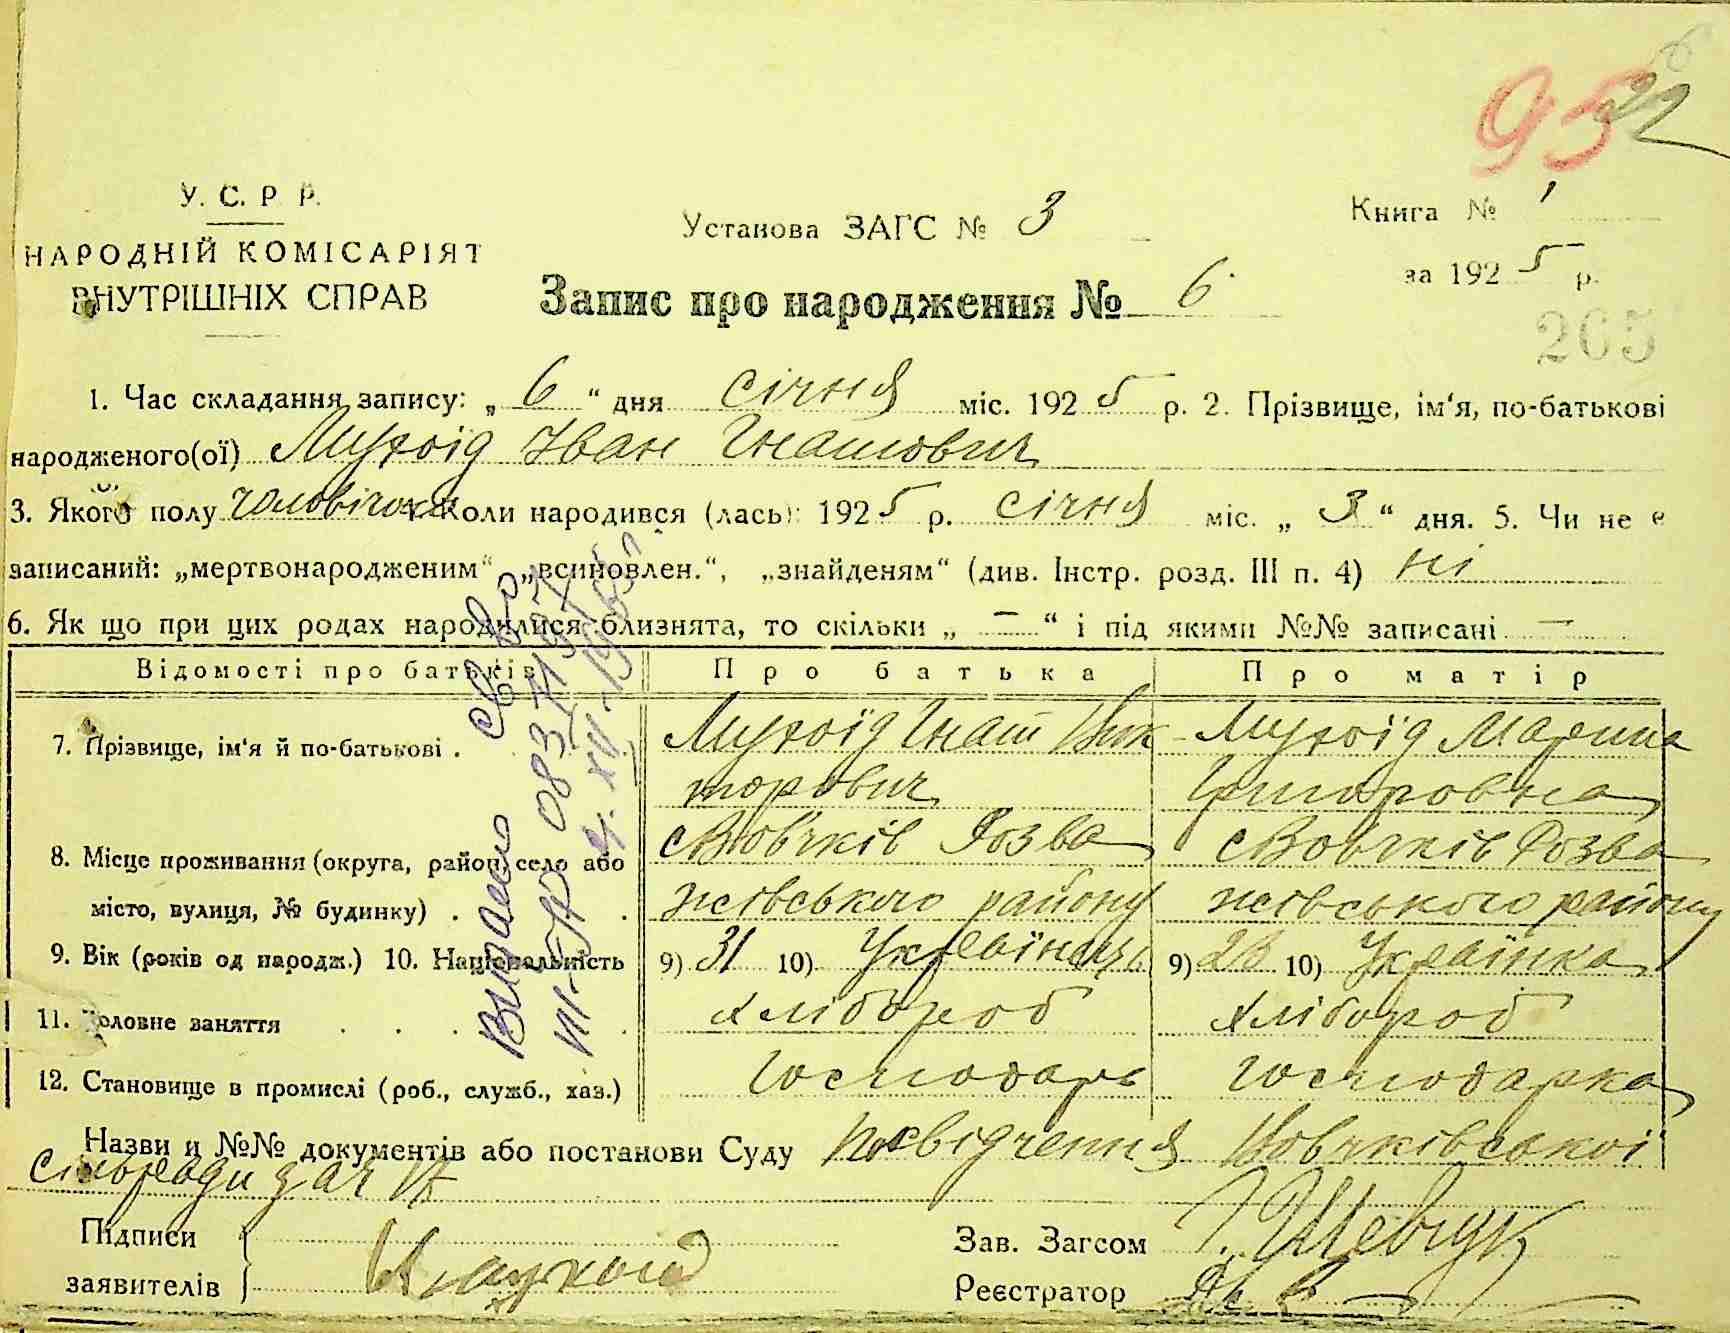 95 22
У. С. Р. Р.
НАРОДНІЙ КОМІСАРІЯТ
ВНУТРІШНІХ СПРАВ
Установа ЗАГС № 3
Книга № 1
за 1925 р.
Запис про народження № 6
265
1. Час складання запису: „6“ дня січня міс. 1925 р. 2. Прізвище, ім‘я, по-батькові
народженого(ої) Мухоід Іван Гнатович
3. Якого полу чоловічок 4. Коли народився (лась): 1925 р. січня міс. „3“ дня. 5. Чи не є
записаний: „мертвонародженим“, „всиновлен.“, „знайденям“ (див. Інстр. розд. III п. 4) ні
6. Як що при цих родах народилися близнята, то скільки „ — “ і під якими №№ записані —
Відомості про батьків Про батька Про матір
7. Прізвище, ім‘я й по-батькові . Мухоїд Гнат Вик- Мухоїд Марина
торович Григоровна
8. Місце проживання (округа, район, село або с Вовчків Розва с Вовчків Розва
місто, вулиця, № будинку) . . жівського району жівського району
9. Вік (років од народж.) 10. Національність 9) 31 10) Українець 9) 23 10) Українка
11. Головне заняття . . . . Хлібороб Хлібороб
12. Становище в промислі (роб., служб., хаз.) господарь господарка
Видано св-во
III-БР 083719
Назви и №№ документів або постанови Суду Посвідчення Вовчківської
сільради за № 14
Підписи
заявителів
Мухоид
Зав. Загсом Шевчук
Реєстратор